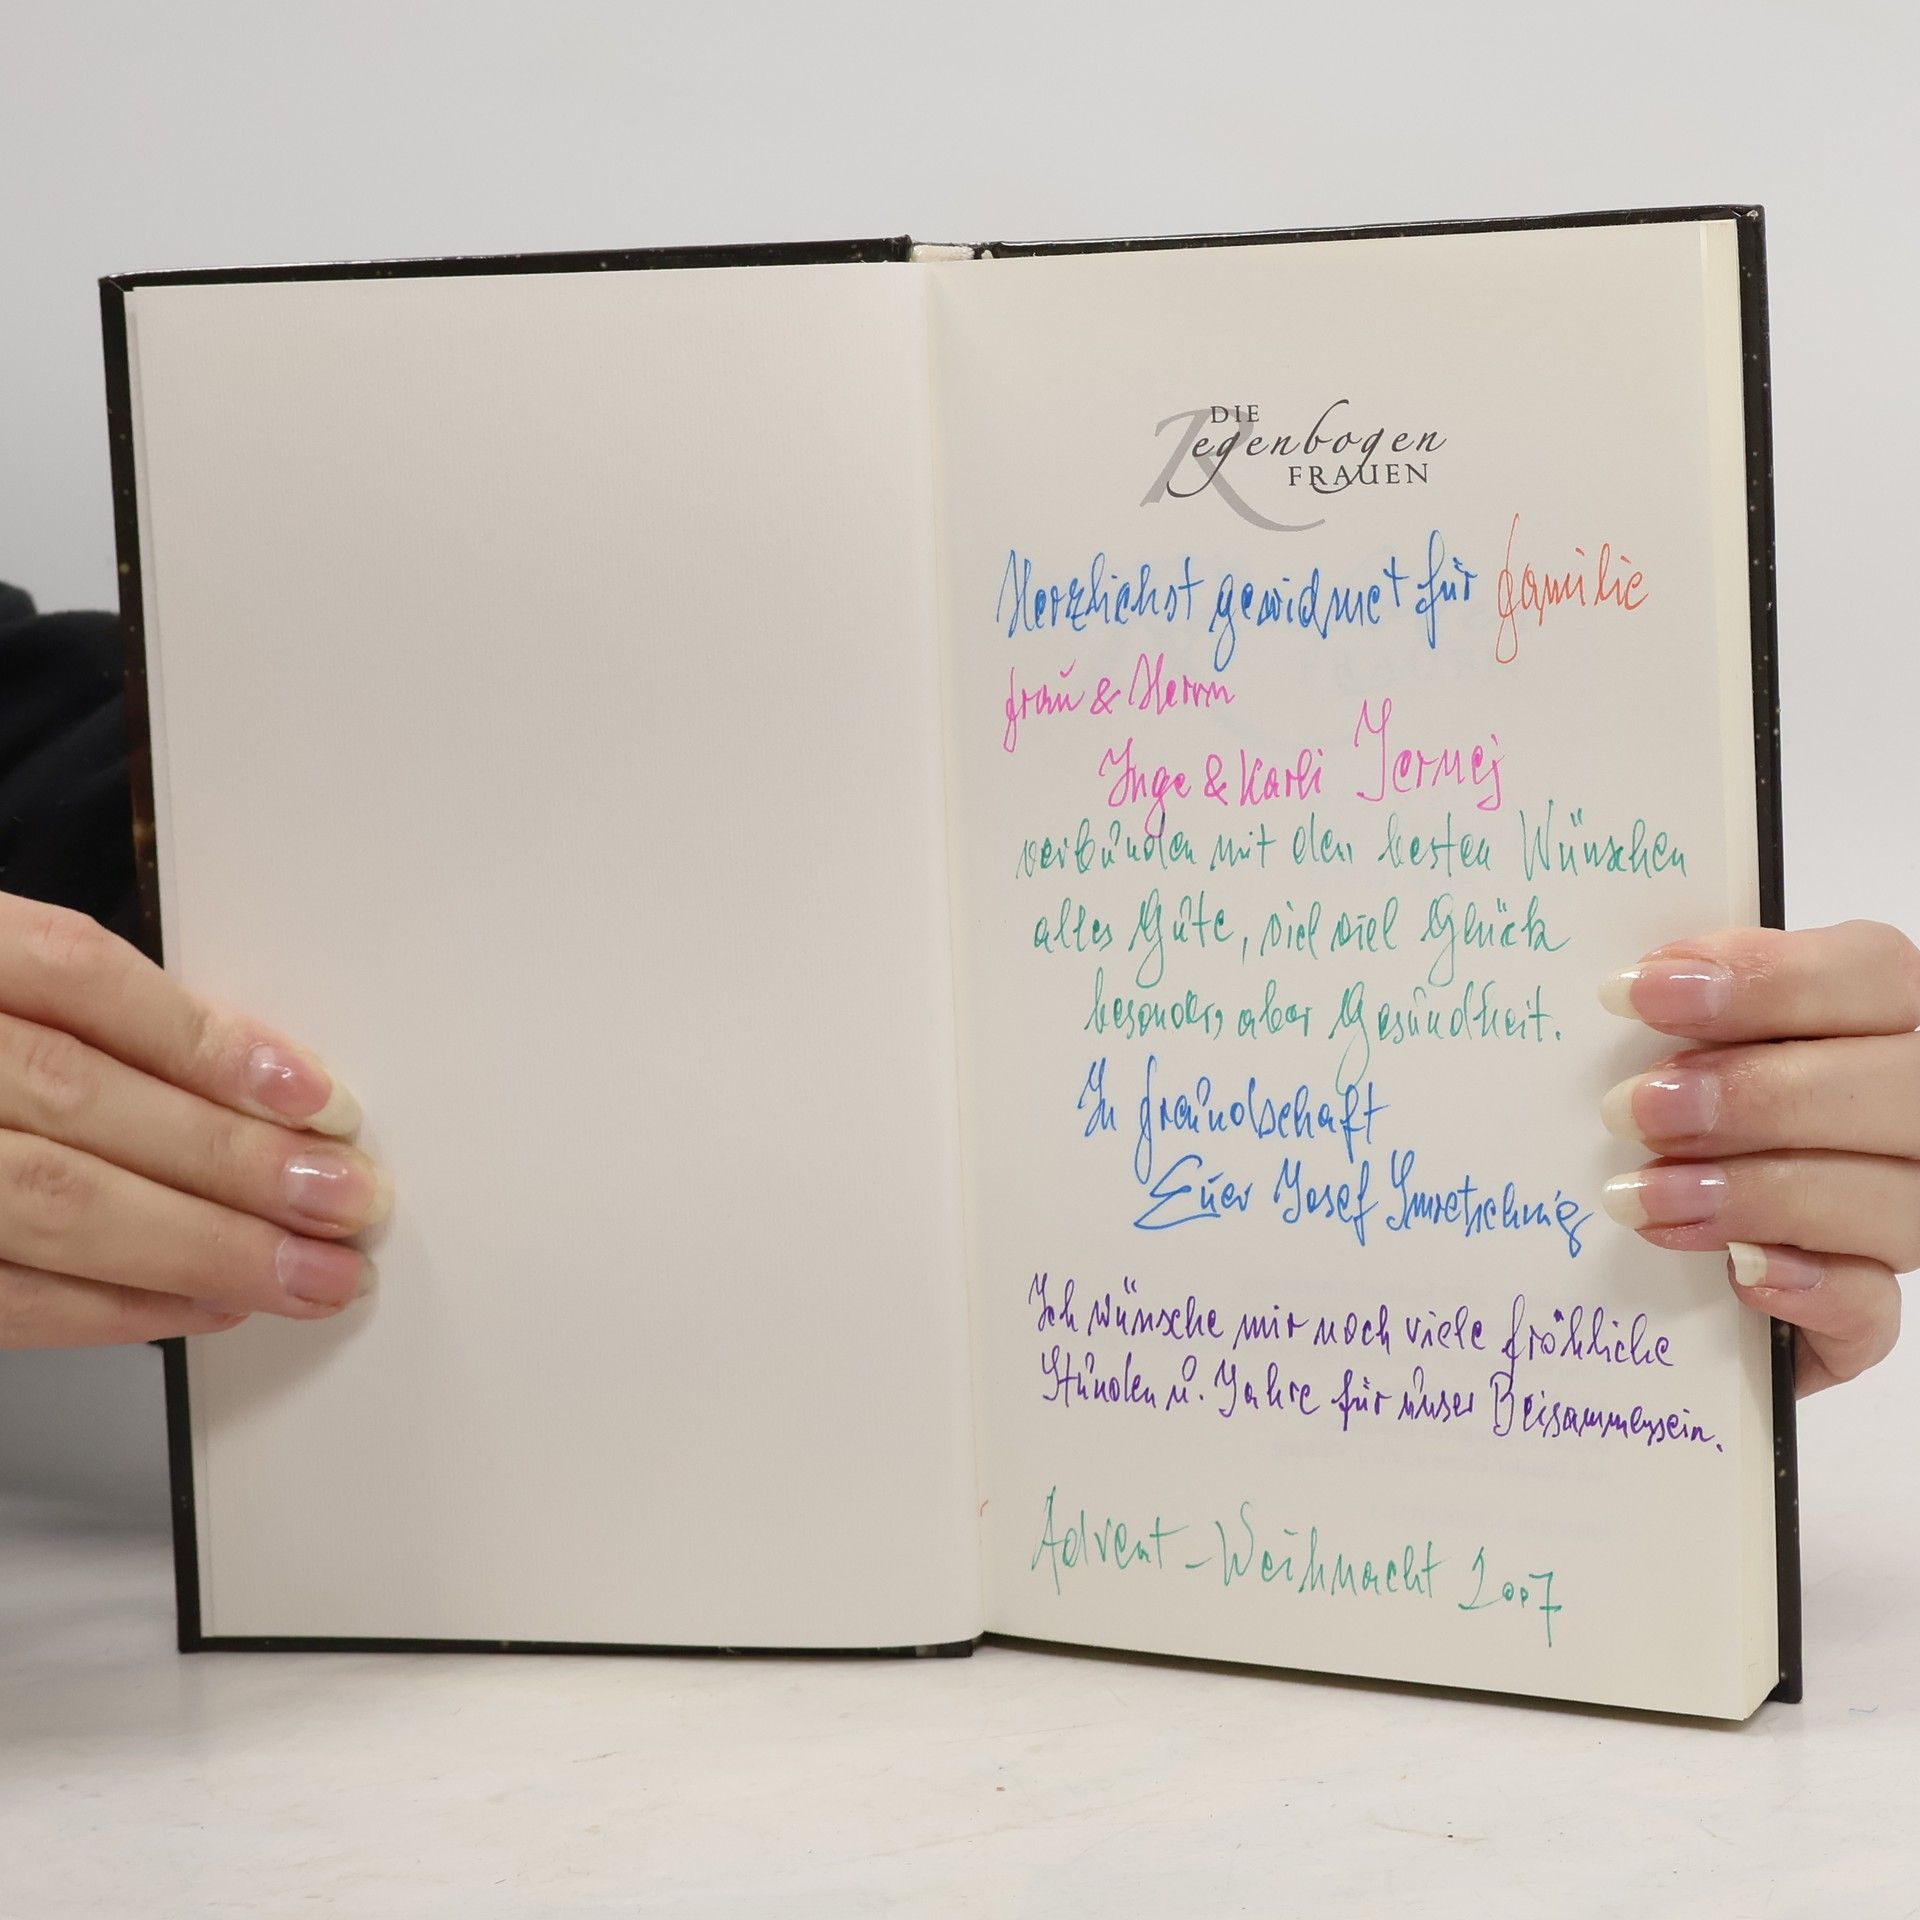 DIE
Regenbogen
FRAUEN
Herzlichst gewidmet für Familie
Frau & Herrn
Inge & Karli Jernej
verbunden mit den besten Wünschen
alles Gute, viel viel Glück
besonders aber Gesundheit.
In Freundschaft
Euer Josef
Ich wünsche mir noch viele fröhliche
Stunden u. Jahre für unser Beisammensein.
Advent - Weihnacht 2007